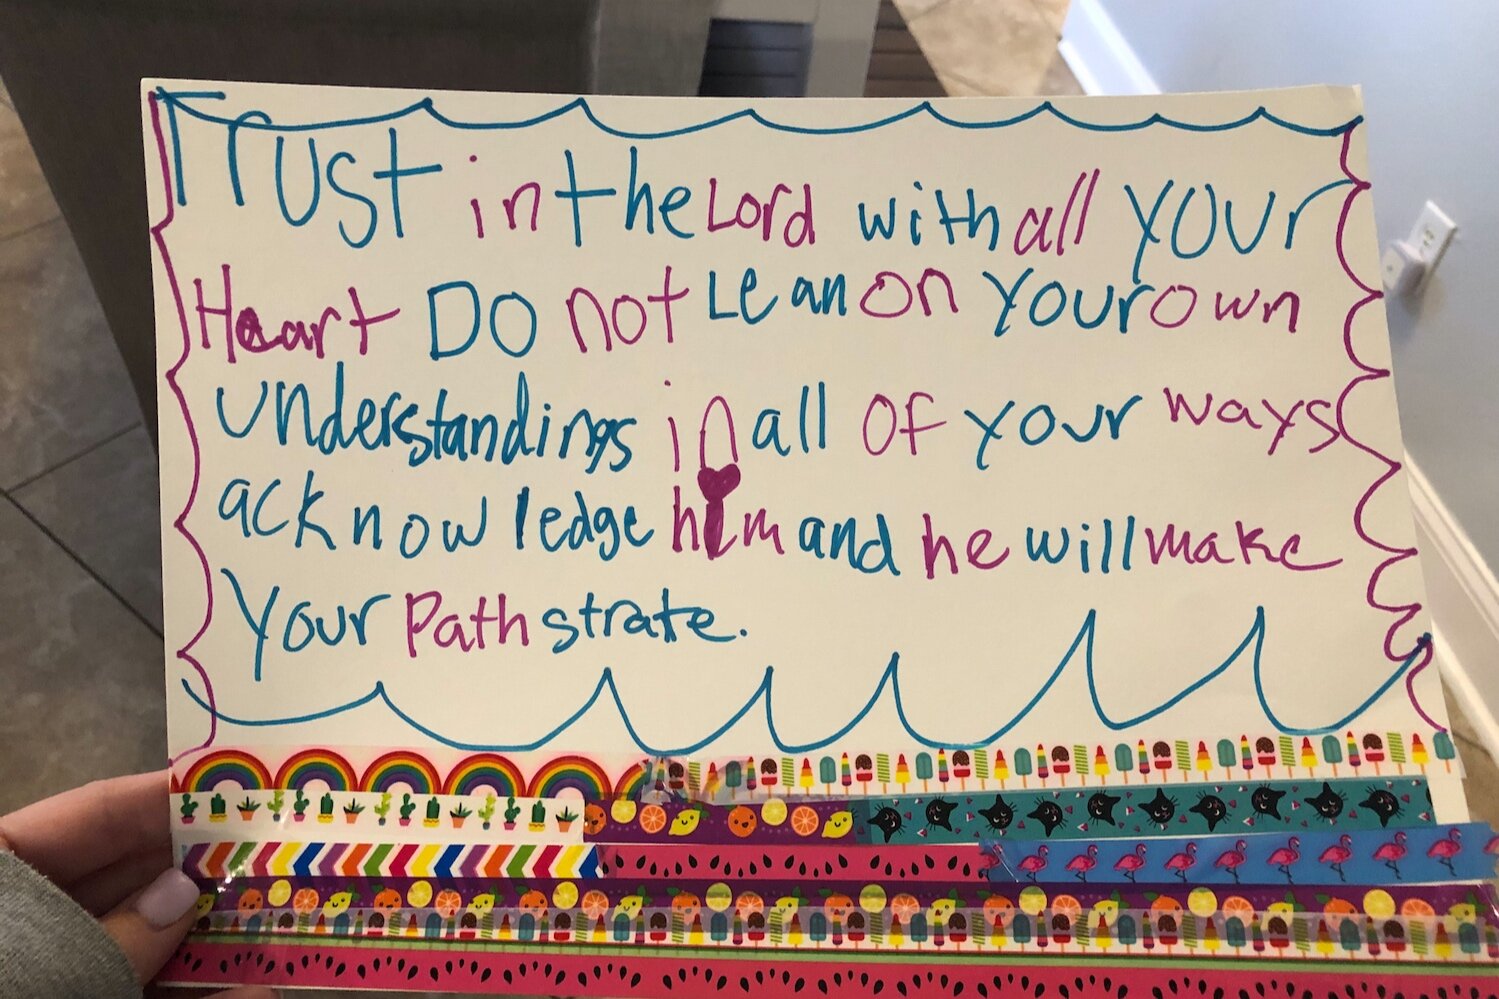 Trust in the Lord with all your
Heart Do not Lean on your own
understandings in all of your ways
acknowledge him and he will make
your Path strate.